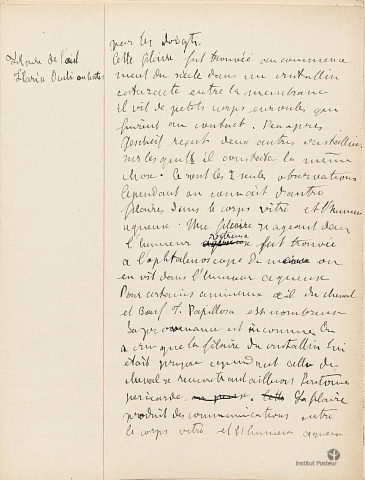 pour les doigts.
Filaire de l'œil
Filaria Oculi
Cette filaire fut trouvée au commence
ment du siècle dans un cristallin
cataracté entre la membrane
il vit de petits corps enroulés qui
furent au contact. Peu après
Gescheit reçut deux autres cristallins
sur lesquels il constata la même
chose. Ce sont les 2 seules observations
Cependant on connait d'autres
filaires dans le corps vitré et l'humeur
aqueuse. Une filaire nageant dans
l'humeur vitreuse fut trouvée
à l'ophtalmoscope de même on
en vit dans l'humeur aqueuse
Pour certains animaux œil du cheval
et Bœuf F. Papillosa est nombreuse
Sa provenance est inconnue On
a cru que la filaire du cristallin lui
était propre cependant celle du
cheval se rencontrant ailleurs
péricarde La filaire
produit des communications entre
le corps vitré et l'humeur aqueuse
Institut Pasteur